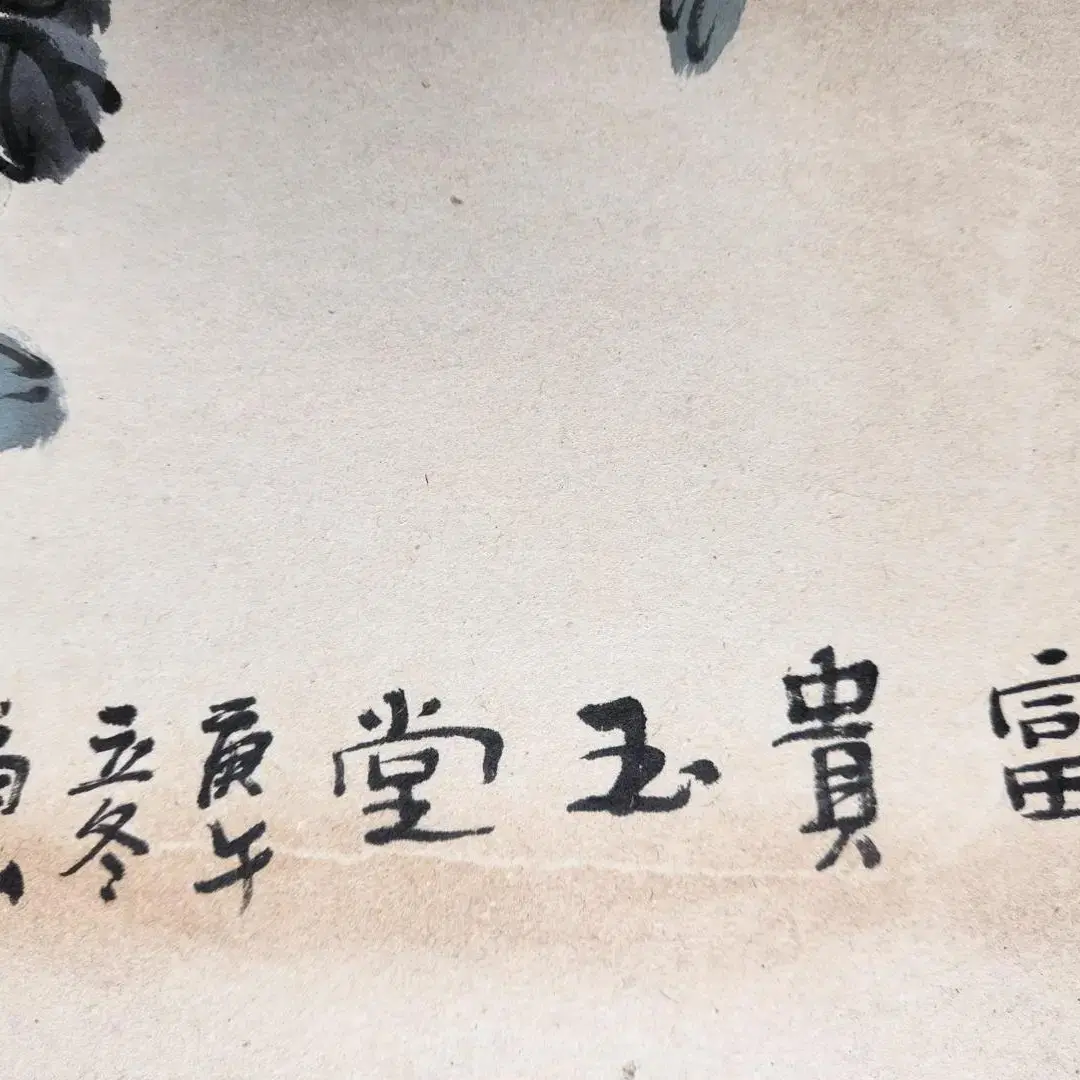 富貴玉堂
庚午
立冬